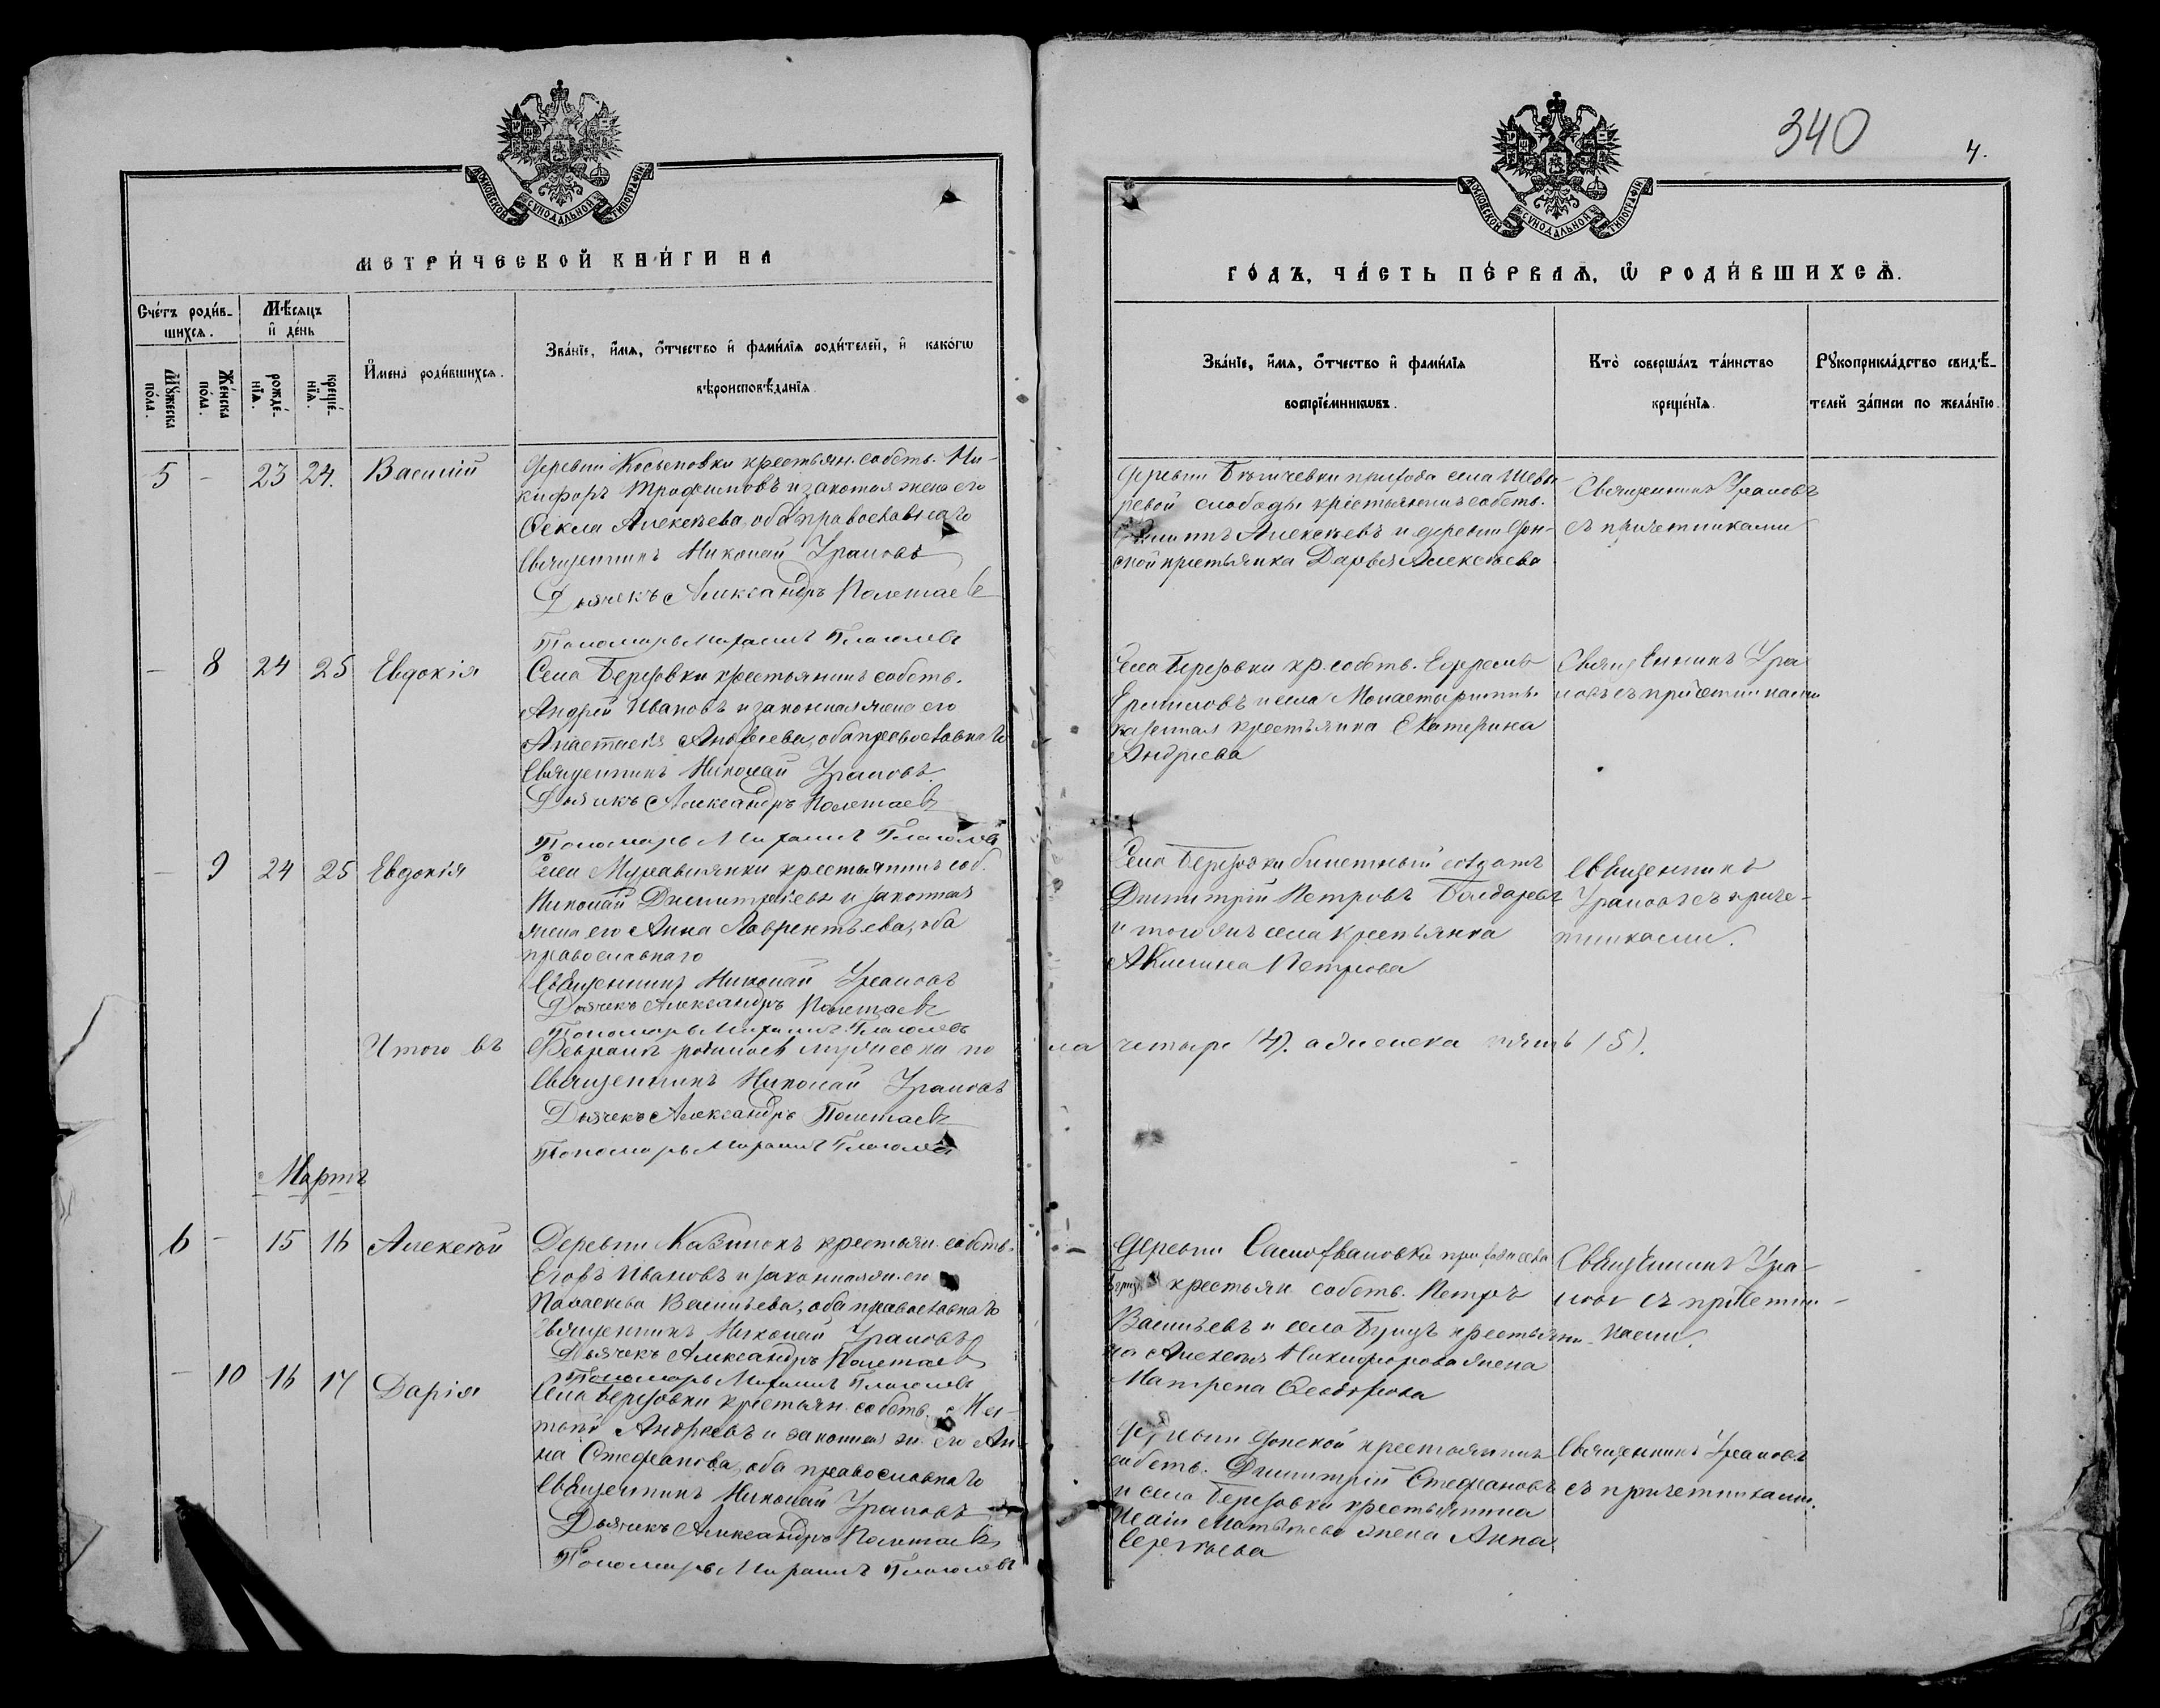 340
4.
МОСКОВСКОЙ СѴНОДАЛЬНОЙ ТИПОГРАФІИ
МОСКОВСКОЙ СѴНОДАЛЬНОЙ ТИПОГРАФІИ
МЕТРИ́ЧЕСКОЙ КНИ́ГИ НА
Сче́тъ роди́в-
шихсѧ.
Мѣ́сѧцъ
и҆ де́нь
Мꙋ́жеска
по́ла.
Же́нска
по́ла.
рожде́-
нїѧ.
креще́-
нїѧ.
И҆мена̀ роди́вшихсѧ.
Зва́нїе, и҆́мѧ, ѻ҆́тчество и҆ фами́лїѧ роди́телей, и҆ како́гѡ
вѣроисповѣ́данїѧ.
5 - 23 24. Василій
Деревни Косьеповки крестьян. собств. Ни-
кифоръ Трофимовъ и законная жена его
Ѳекла Алексѣева, оба православнаго
Священникъ Николай Ураловъ
Дьячекъ Александръ Полетаевъ
Пономарь Михаилъ Глаголевъ
- 8 24 25 Евдокія
Села Березовки крестьянинъ собств.
Андрей Ивановъ и законная жена его
Анастасія Андреева, оба православнаго
Священникъ Николай Ураловъ
Дьячекъ Александръ Полетаевъ
Пономарь Михаилъ Глаголевъ
- 9 24 25 Евдокія
Села Муравлянки крестьянинъ соб.
Николай Дмитріевъ и законная
жена его Анна Лаврентьева, оба
православнаго
Священникъ Николай Ураловъ
Дьячекъ Александръ Полетаевъ
Пономарь Михаилъ Глаголевъ
Итого въ Февралѣ родилось мужеска по
Священникъ Николай Ураловъ
Дьячекъ Александръ Полетаевъ
Пономарь Михаилъ Глаголевъ
Мартъ
6 - 15 16 Алексѣй
Деревни Казинокъ крестьян. собств.
Егоръ Ивановъ и законная ж. его
Васильева, оба православнаго
Священникъ Николай Ураловъ
Дьячекъ Александръ Полетаевъ
Пономарь Михаилъ Глаголевъ
- 10 16 17 Дарія
Села Березовки крестьян. собств.
Андреевъ и законная ж. его Ан-
на Стефанова, оба православнаго
Священникъ Николай Ураловъ
Дьячекъ Александръ Полетаевъ
Пономарь Михаилъ Глаголевъ
ГО́ДЪ, ЧА́СТЬ ПЕ́РВАѦ, Ѽ РОДИ́ВШИХСѦ.
Зва́нїе, и҆́мѧ, ѻ҆́тчество и҆ фами́лїѧ
воспрїе́мникѡвъ.
Кто̀ соверша́лъ та́инство
креще́нїѧ.
Рꙋкоприкла́дство свидѣ́-
телей за́писи по жела́нїю.
Деревни Бѣгичевки прихода села
слободы крестьянинъ собств.
Алексѣевъ и деревни Дон-
ской крестьянка Дарья Алексѣева
Священникъ Ураловъ
съ причетниками
Села Березовки кр. собств. Ефремъ
Ермиловъ и села
крестьянка Екатерина
Андреева
Священникъ Ура-
ловъ съ причетниками
Села Березовки билетный солдатъ
Дмитрій Петровъ Болдаревъ
и того же села крестьянка
Акилина Петрова
Священникъ
Ураловъ съ приче-
тниками.
ла четыре (4). а женска пять (5).
Деревни прихода села
крестьян. собств. Петръ
Васильевъ и села крестьяни-
на Алексѣя Никифорова жена
Матрена Ѳеодорова
Священникъ Ура-
ловъ съ причетни-
ками.
Деревни Донской крестьянинъ
собств. Дмитрій Стефановъ
и села Березовки крестьянина
Исаіи Матвѣева жена Анна
Сергѣева
Священникъ Ураловъ
съ причетниками.